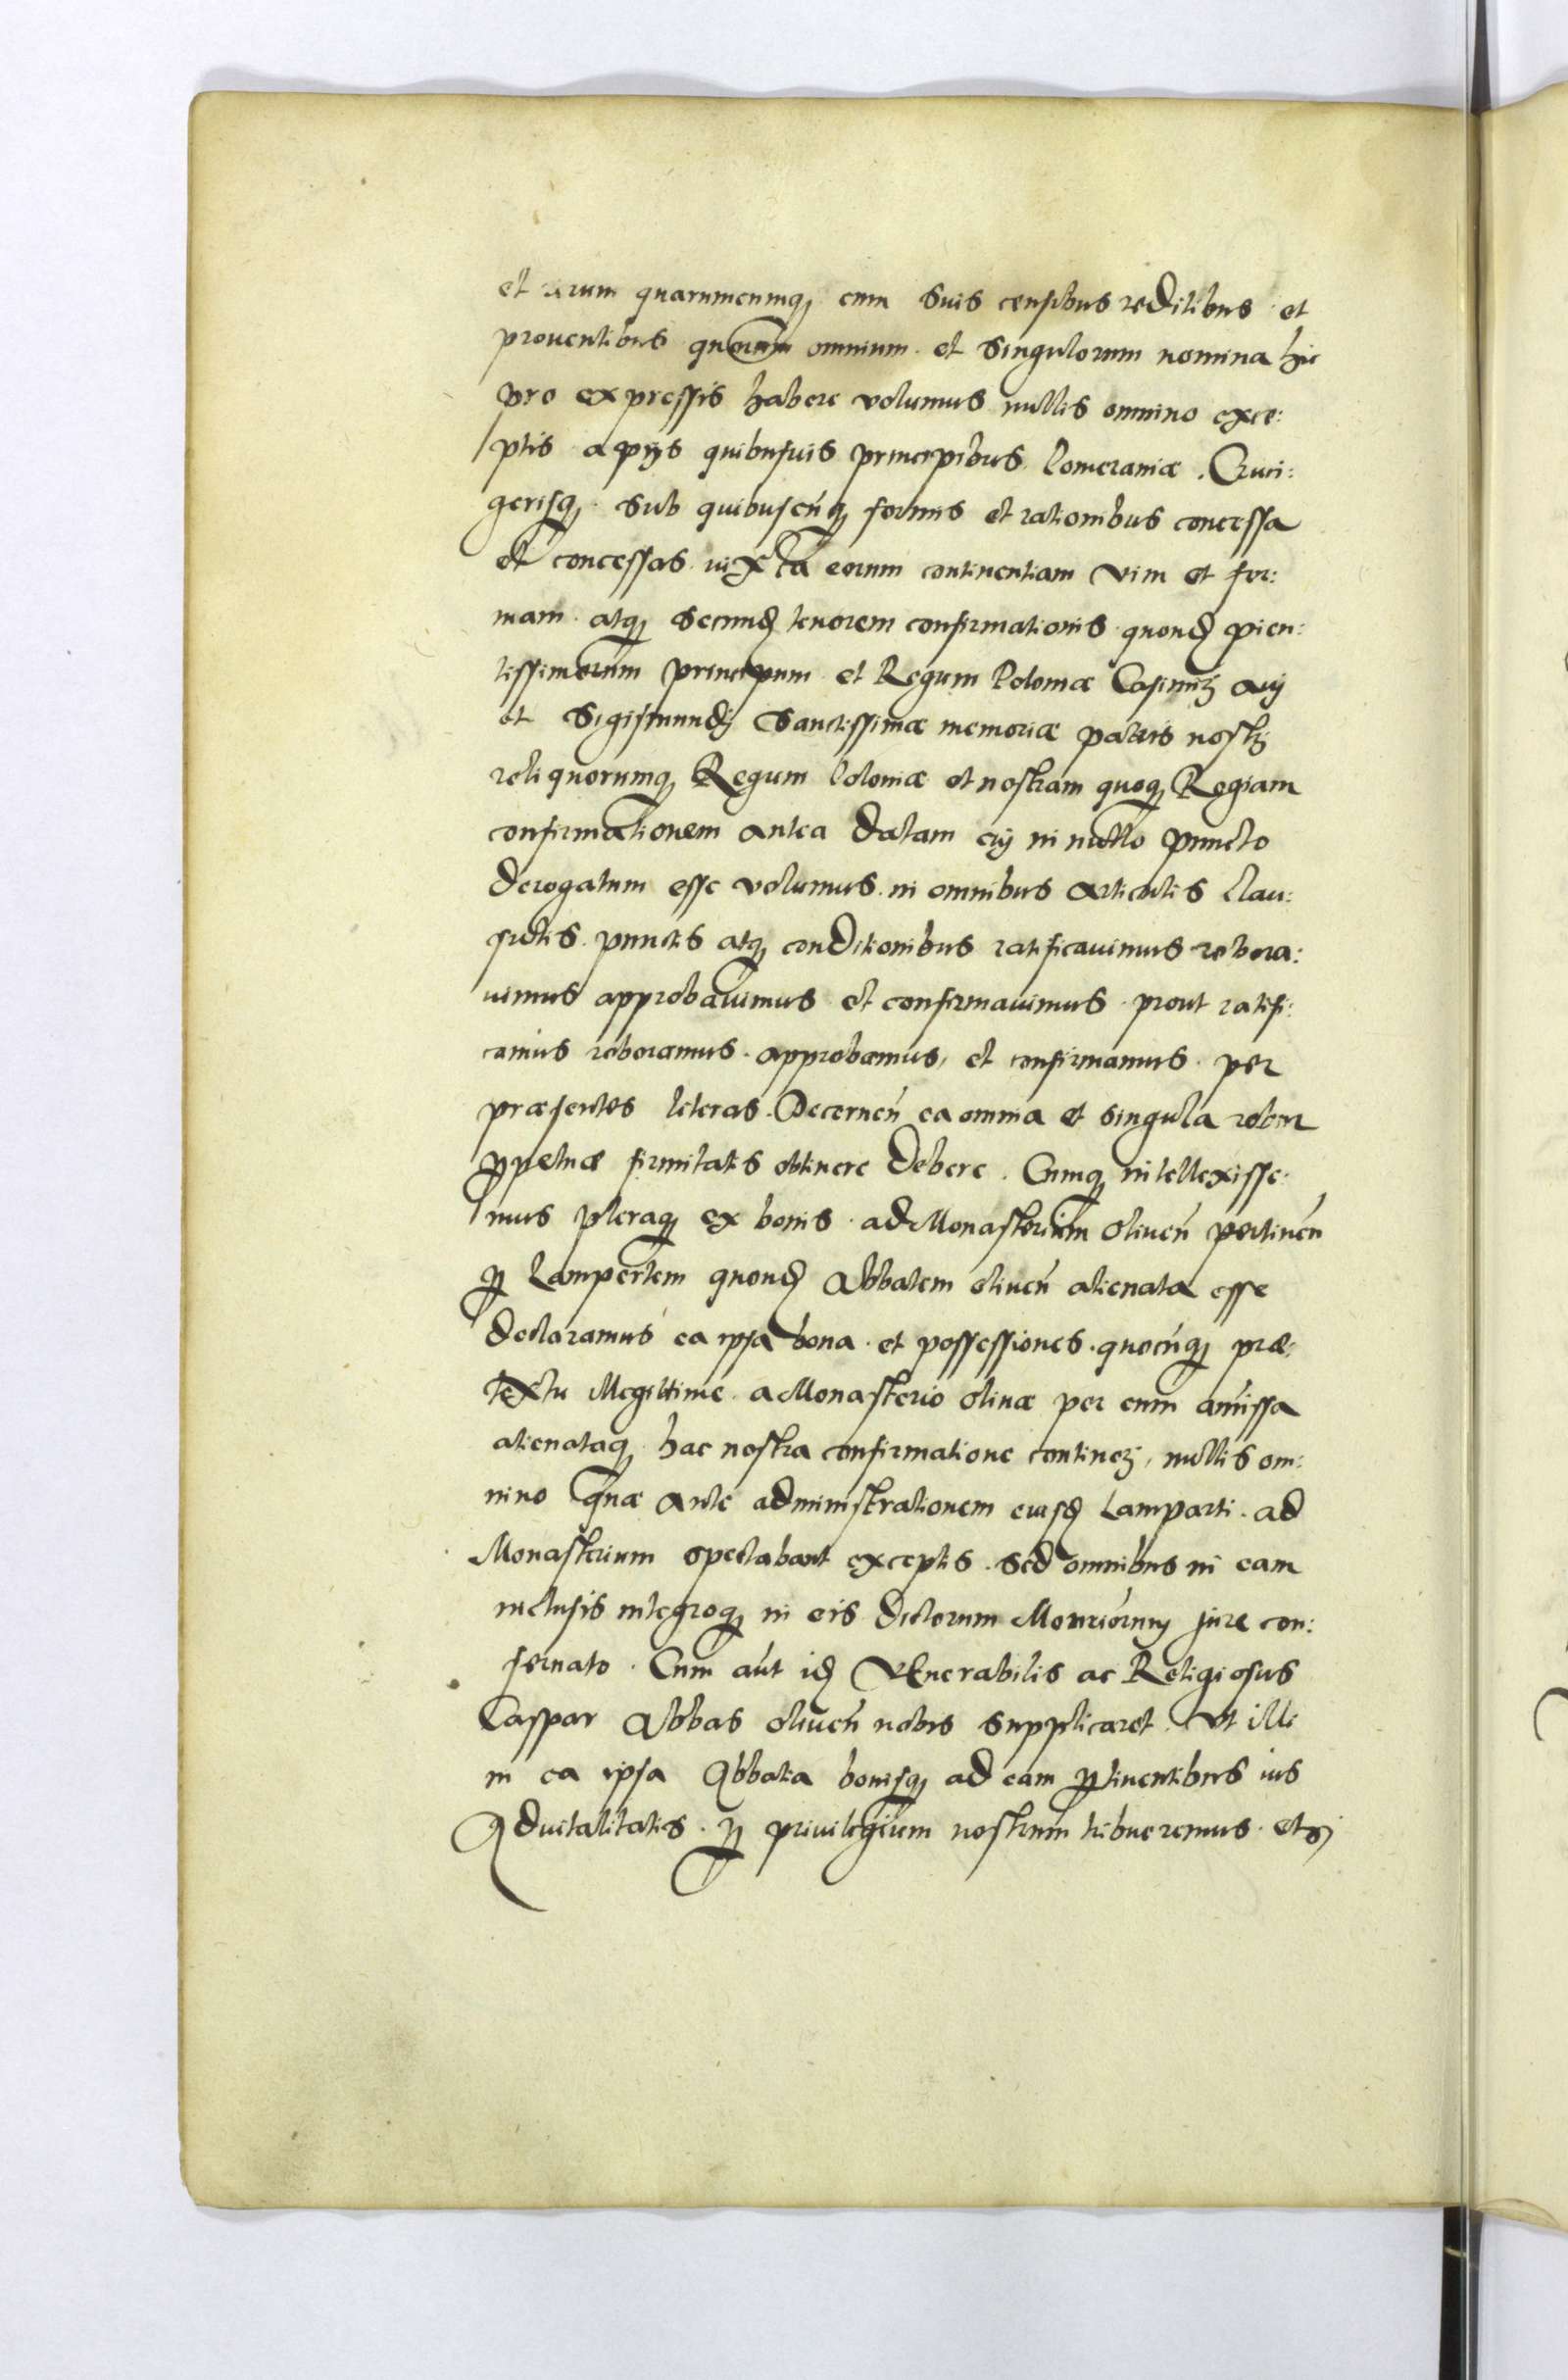 et rerum quarumcumq₃ cum suis censibus reditibus et
prouentibus quorum omnium et singulorum nomina hic
pro expressis habere volumus nullis omnino exce:
ptis a pijs quibusuis principibus Pomeraniæ. Cruci:
gerisq₃ sub quibuscūq₃ formis et rationibus concessa
et concessas iuxta eorum continentiam vim et for:
mam atq₃ secund₃ tenorem confirmationis quond₃ pien:
tissimorum principum et Regum Poloniæ Casimirj auj
et Sigismundj Sanctissimæ memoriæ patris nostrj
reliquorumq₃ Regum Poloniæ et nostram quoq₃ Regiam
confirmationem antea datam cuj in nullo puncto
derogatum esse volumus in omnibus articulis clau:
sulis punctis atq₃ conditionibus ratificauimus robora:
uimus approbauimus et confirmauimus prout ratifi:
camus roboramus. approbamus, et confirmamus per
præsentes literas. Decernen̄ ea omnia et singula robur
ꝑpetuæ firmitatis obtinere debere. Cumq₃ intellexisse:
mus pleraq₃ ex bonis ad Monasterium Oliuen̄ pertinen̄
ꝑ Lampertem quond₃ Abbatem oliuen̄ alienata esse
declaramus ea ipsa bona et possessiones quocūq₃ præ:
textu illegittime a Monasterio Oliuæ per eum amissa
alienataq₃ hac nostra confirmatione contineri, nullis om:
nino quæ ante administrationem eiusd₃ Lamparti ad
Monasterium spectabant exceptis. sed omnibus in eam
inclusis integroq₃ in eis dictorum Monriorum jure con:
seruato. Cum aūt id₃ VEnerabilis ac Religiosus
Caspar Abbas oliuen̄ nobis supplicaret. Vt illi
in ea ipsa Abbatia bonisq₃ ad eam ꝑtinentibus ius
Aduitalitatis ꝑ priuilegium nostrum tribueremus etsj